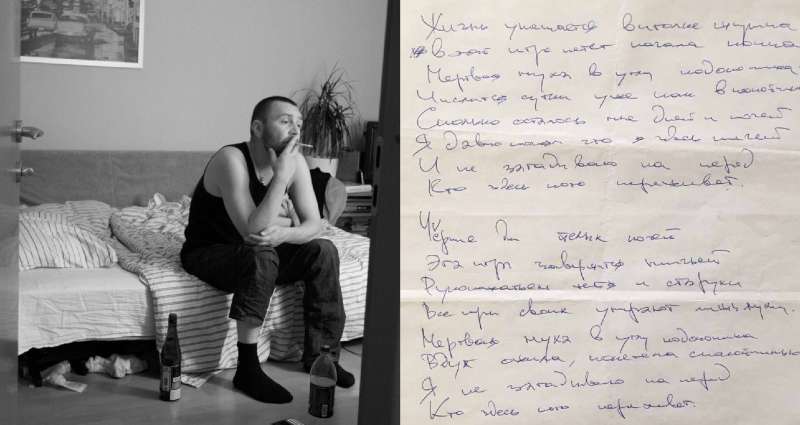 Жизнь умещается в
в этой игре нет начала конца
Мертвая муха в углу подоконника
сутки уже как
Сколько осталось мне дней и ночей
Я давно понял что я здесь ничей
И не загадываю на перед
Кто здесь кого переживет.
Черные Дни ночей
Эта игра завершится ничьей
Рукопожатьем и старухи
Все при своих умирают лишь мухи.
Мертвая муха в углу подоконника
Вдруг ожила, полетела спокойненько
Я не загадываю на перед
Кто здесь кого переживет.